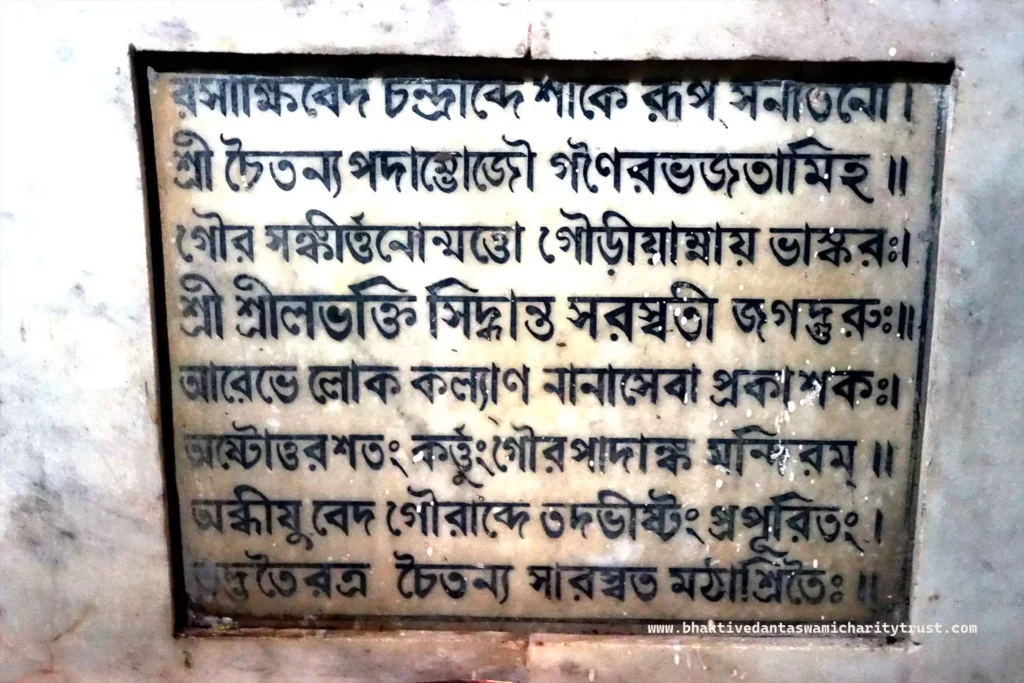 রসাক্ষিবেদ চন্দ্রাব্দে শাকে রূপ সনাতনো।
শ্রী চৈতন্য পদাম্ভোজৌ গণৈরভজতামিহ॥
গৌর সঙ্কীর্ত্তনোন্মত্তো গৌড়ীয়াম্নায় ভাস্করঃ।
শ্রী শ্রীলভক্তি সিদ্ধান্ত সরস্বতী জগদ্গুরুঃ॥
আরেভে লোক কল্যাণ নানাসেবা প্রকাশকঃ।
অষ্টোত্তরশতং কর্ত্তুংগৌরপাদাঙ্ক মন্দিরম্॥
অব্ধীষু বেদ গৌরাব্দে তদভীষ্টং প্রপূরিতং।
চৈতন্য সারস্বত মঠাশ্রিতৈঃ॥
www.bhaktivedantaswamicharitytrust.com